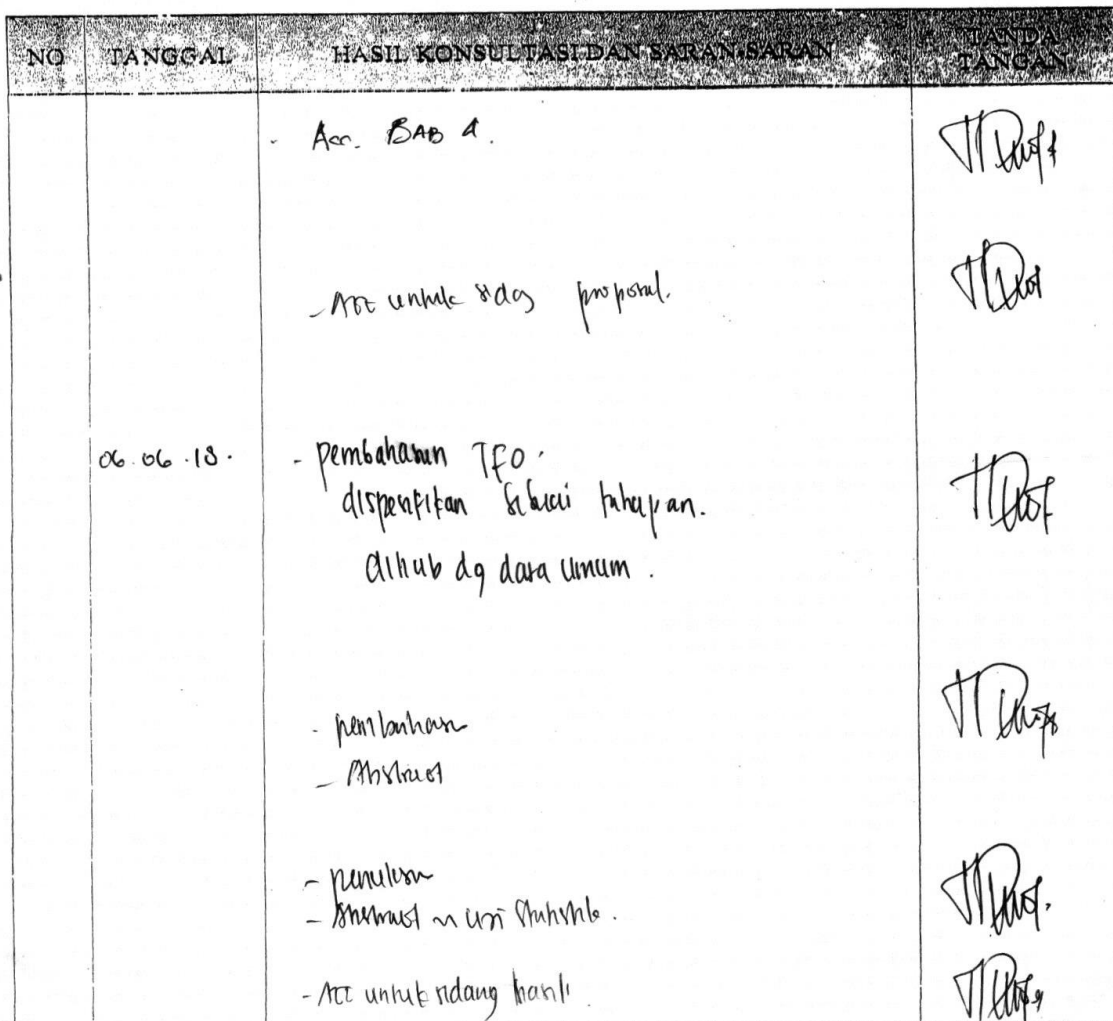 NO TANGGAL HASIL KONSULTASI DAN SARAN-SARAN TANDA TANGAN
- Acc. BAB 4.
- Acc untuk sidg proposal.
06.06.18. - pembahasan TFO.
dispesifikan sesuai tahapan.
dihub dg data umum.
- pembahasan
- Abstract
- penulisan
- Abstract n uji statistik.
- Acc untuk sidang hasil